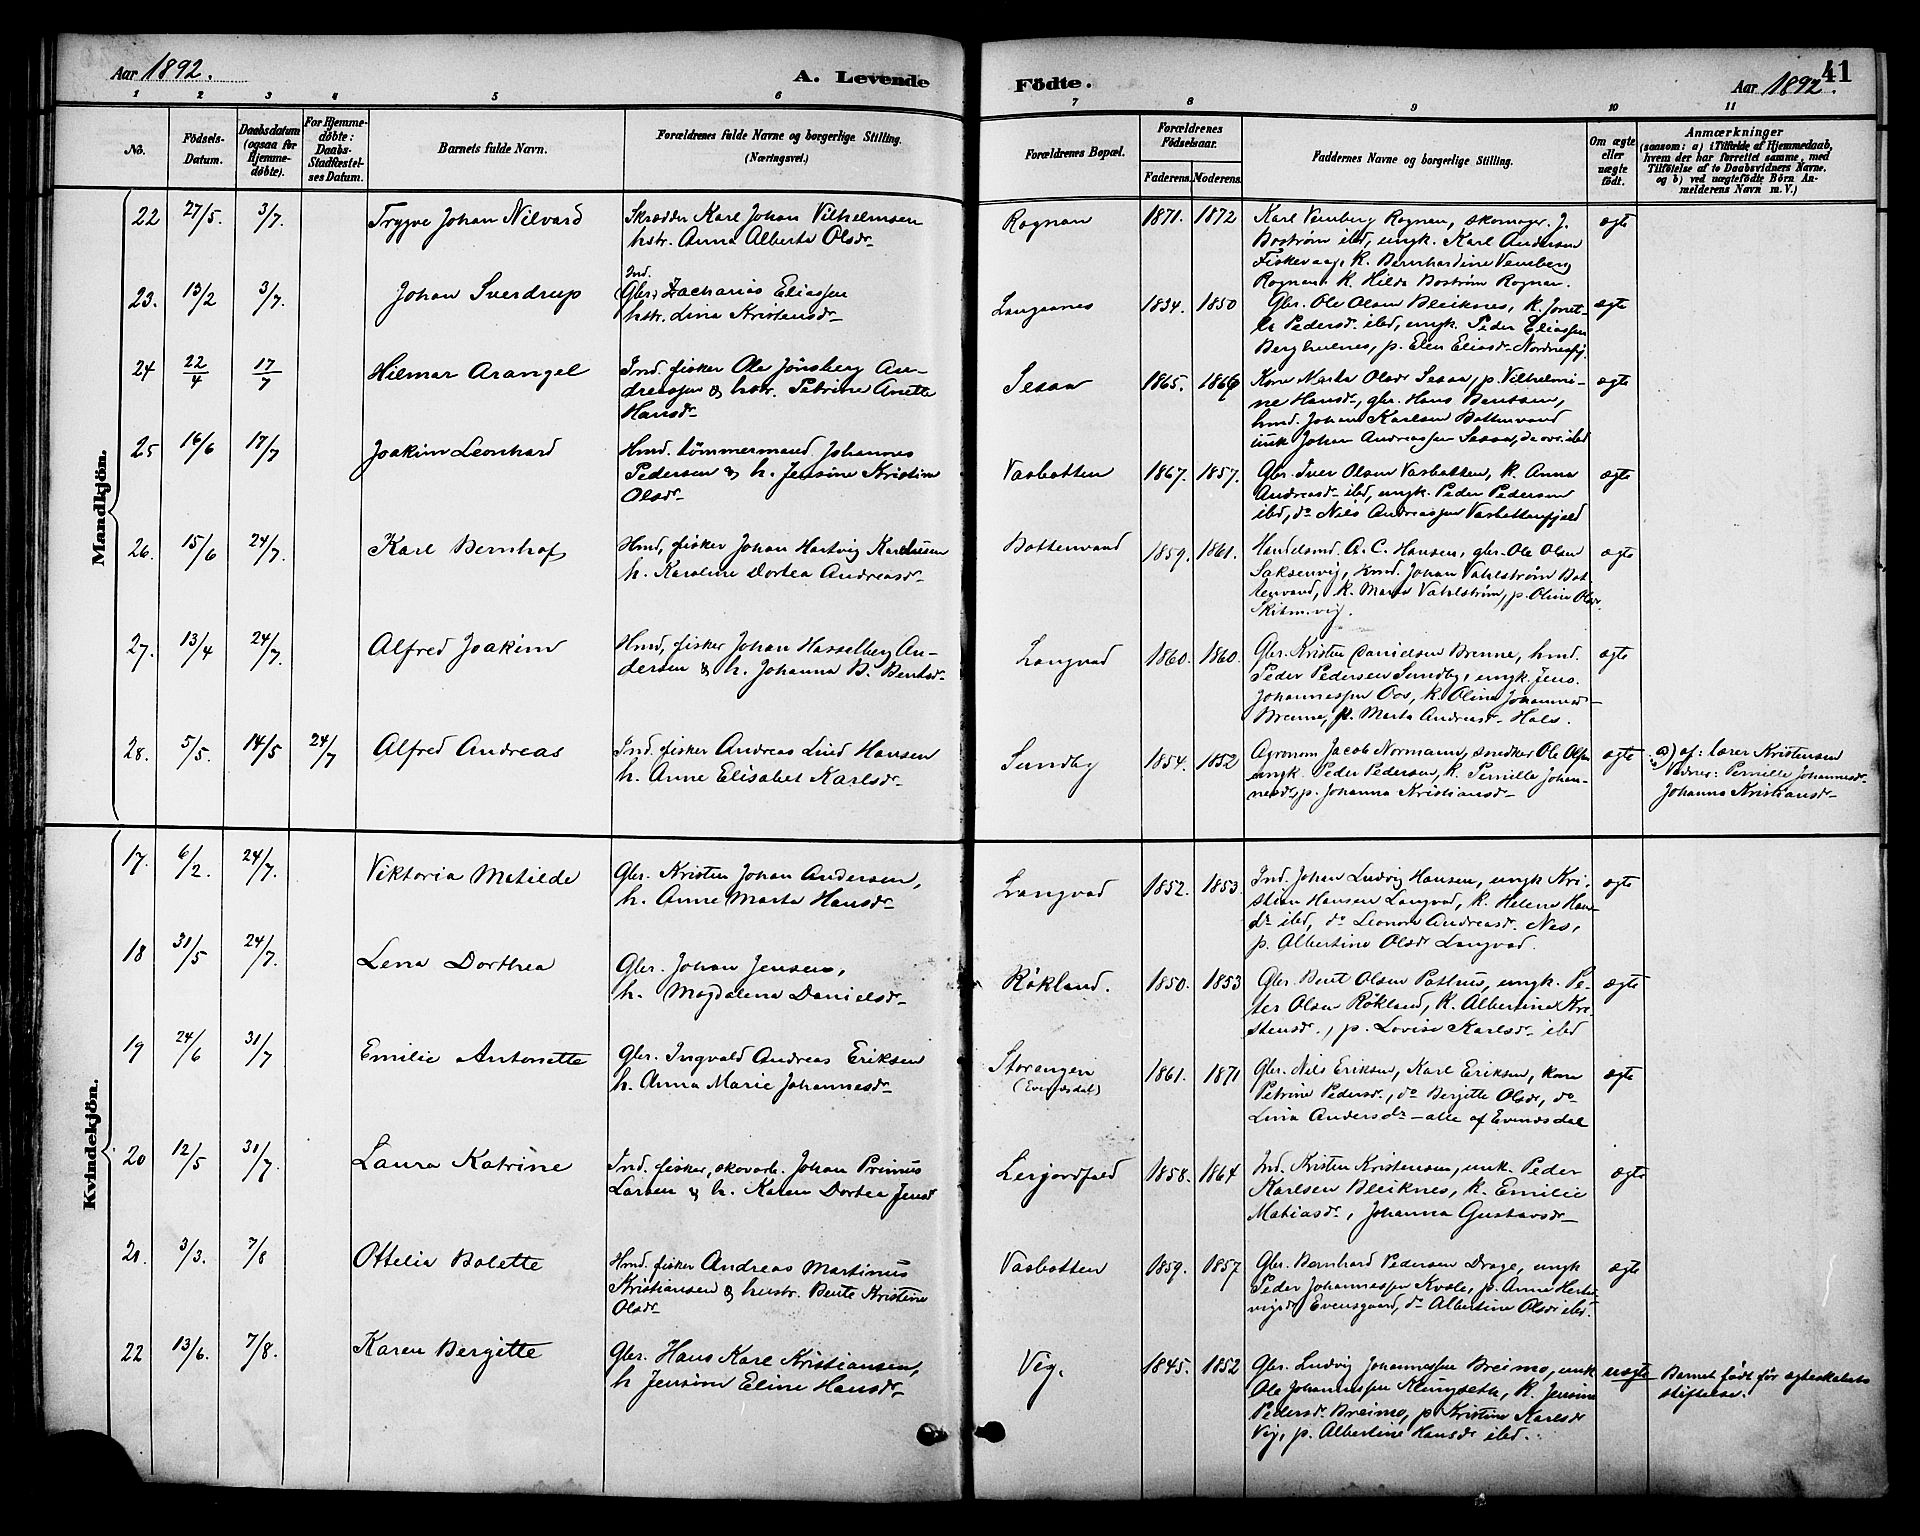 Aar 1892.
A. Levende
Födte.
Aar 1892.
41
1 2 3 4 5 6 7 8 9 10 11
No.
Födsels-
Datum.
Daabsdatum
(ogsaa for
Hjemme-
døbte).
For Hjemme-
døbte:
Daabs-
Stadfæstel-
ses Datum.
Barnets fulde Navn.
Forældrenes fulde Navne og borgerlige Stilling.
(Næringsvei.)
Forældrenes Bopæl.
Forældrenes
Födselsaar.
Faderens.
Moderens.
Faddernes Navne og borgerlige Stilling.
Om ægte
eller
uægte
født.
Anmærkninger
(saasom: a) i Tilfælde af Hjemmedaab,
hvem der har forrettet samme, med
Tilföielse af to Daabsvidners Navne,
og b) ved uægtefödte Börn An-
melderens Navn m. V.)
Mandkjön.
22 27/5. 3/7. Trygve Johan Nilvard
Skrædder Karl Johan Vilhelmsen
hstr. Anna Alberta Olsdr
Rognan 1871. 1872
Karl Vensberg Rognan, skomager J.
Bostrøm ibd, ungk. Karl Andersen
Fiskevaag, k. Bernhardine Vensberg
Rognan, k. Hilda Bostrøm Rognan.
ægte
23. 13/2 3/7. Johan Sverdrup
Ind.
Gbr. Zacharias Eliassen
hstr. Lina Kristensdr
Langnes 1834. 1850
Gbr. Ole Olsen Bleiknes, k. Jonet-
te Pedersdr ibd, ungk. Peder Eliassen
Berghulnes, p. Elen Eliasdr Nordnesfj.
ægte
24 22/4 17/7 Hilmar Arangel
Ind. fisker Ole Jönsberg An-
dreassen & hstr. Petrine Anette
Hansdr
Sesaa 1865. 1866
Kone Marta Olsdr Sesaa, p. Vilhelmi-
ne Hansdr, gbr. Hans Bentsen,
hmd. Johan Karlsen Bottenvand
unk Johan Andreassen Sesaa, de øvr. ibd
ægte
25 16/6 17/7 Joakim Leonhard
Hmd. tömmermand Johannes
Pedersen & h. Jensine Kristine
Olsdr
Vasbotten 1867. 1857.
Gbr. Iver Olsen Vasbotten, k. Anna
Andreasdr ibd, ungk. Peder Pedersen
ibd, do Nils Andreassen Vasbottenfjeld
ægte
26. 15/6 24/7. Karl Bernhof
Hmd, fisker Johan Hartvig Karelius­en
h. Karoline Dortea Andreasdr
Bottenvand 1859. 1861.
Handelsmd. A. C. Hansen, gbr. Ole Olsen
Saksenvig, hmd. Johan Vahlstrøm Bot-
tenvand, k. Marta Vahlstrøm, p. Oline Olsdr
ægte
27. 13/4 24/7. Alfred Joakim
Hmd, fisker Johan Hasselberg An-
dersen & h. Johanna B. Bentsdr
Langvad 1860. 1860.
Gbr. Kristen Danielsen Brenne, hmd.
Peder Pedersen Sundby, ungk. Jens
Johannessen Oos, k. Oline Johannesdr
Brenne, p. Marta Andreasdr Hals.
ægte
28. 5/5. 14/5 24/7 Alfred Andreas
Ind. fisker Andreas Lind Hansen
h. Anne Elisabet Karlsdr
Sundby 1854. 1852
Agronom Jacob Normann, snedker Ole Olsen
ungk. Peder Pedersen, k. Pernille Johan-
nesdr, p. Johanna Kristiansdr
ægte
a) af: lærer Kristensen
Vidner: Pernille Johannesdr
Johanna Kristiansdr
Kvindekjön.
17. 6/2. 24/7. Viktoria Matilde
Gbr. Kristen Johan Andersen,
h. Anne Marta Hansdr
Langvad 1852. 1853.
Ind. Johan Ludvig Hansen, ungk Kri-
stian Hansen Langvad, k. Helene Han-
dr ibd, do Leonora Andreasdr. Nes,
p. Albertine Olsdr Langvad.
ægte
18 31/5 24/7. Lena Dorthea
Gbr. Johan Jensen,
h. Magdalena Danielsdr
Røkland. 1850. 1853
Gbr. Bent Olsen Posthus, ungk. Pe-
ter Olsen Røkland, k. Albertine Kri-
stensdr., p. Lovise Karlsdr ibd
ægte
19 24/6 31/7 Emilie Antonette
Gbr. Ingvald Andreas Eriksen
h. Anna Marie Johannesdr
Storengen
(Evensdal)
1861. 1871
Gbr. Nils Eriksen, Karl Eriksen, kone
Petrine Pedersdr., do Bergitte Olsdr, do
Lina Andersdr – alle af Evensdal
ægte
20 12/5 31/7. Laura Katrine
Ind. fisker, skovarb. Johan Primus
Larsen & h. Karen Dortea Jensdr
Leirjordfald 1858. 1864
Ind. Kristen Kristensen, unk. Peder
Karlsen Bleiknes, k. Emilie
Matiasdr, Johanna Gustavsdr
ægte
21. 3/3. 7/8 Ottelia Bolette
Hmd. fisker Andreas Martinus
Kristiansen & hustr. Bente Kristine
Olsdr
Vasbotten 1859. 1857
Gbr. Bernhard Pedersen Drage, ungk
Peder Johannessen Kvale, p. Anne Hert-
vigsdr Evensgaard, do Albertine Olsdr ibd.
ægte
22 13/6. 7/8. Karen Bergitte
Gbr. Hans Karl Kristiansen,
h Jensine Eline Hansdr
Vig. 1845. 1852
Gbr. Ludvig Johannessen Breimo, unk
Ole Johannessen Klungseth, k. Jensine
Pedersdr. Breimo, p. Kristine Karlsdr
Vig, p. Albertine Hansdr ibd.
uægte
Barnet født før ægteskabets
stiftelse.